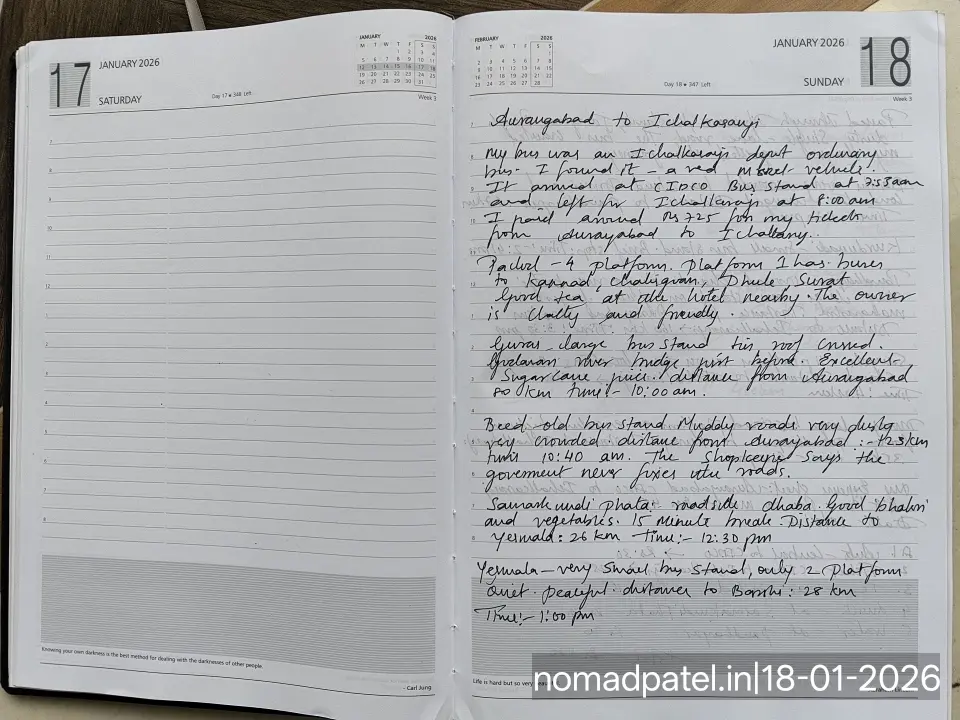 17
JANUARY 2026
SATURDAY
Day 17 • 348 Left
Week 3
JANUARY 2026
M T W T F S S
1 2 3 4
5 6 7 8 9 10 11
12 13 14 15 16 17 18
19 20 21 22 23 24 25
26 27 28 29 30 31
Knowing your own darkness is the best method for dealing with the darknesses of other people.
- Carl Jung
FEBRUARY 2026
M T W T F S S
1
2 3 4 5 6 7 8
9 10 11 12 13 14 15
16 17 18 19 20 21 22
23 24 25 26 27 28
JANUARY 2026
18
SUNDAY
Day 18 • 347 Left
Week 3
Aurangabad to Ichalkaranji
My bus was an Ichalkaranji depot ordinary
bus. I found it – a red vehicle.
It arrived at CIDCO Bus Stand at 7:55am
and left for Ichalkaranji at 8:00 am
I paid around Rs 725 for my ticket
from Aurangabad to
– 4 platform. Platform 1 has buses
to Kannad, Chalisgaon, Dhule, Surat
Good tea at the hotel nearby. The owner
is Chatty and friendly.
large bus stand tin roof
Godavari river bridge just before. Excellent
Sugarcane juice. distance from Aurangabad
80 km time:- 10:00 am.
Beed – old bus stand. Muddy roads very dusty
very crowded. distance from Aurangabad :- 123 km
time 10:40 am. The Shopkeeper says the
government never fixes the roads.
phata: roadside dhaba. Good 'bhakri'
and vegetables. 15 minute break. Distance to
Yermala: 26 km Time:- 12:30 pm
Yermala – very small bus stand, only 2 platform
Quiet. peaceful. distance to Barshi: 28 km
Time:- 1:00 pm
Life is hard but so very
nomadpatel.in|18-01-2026